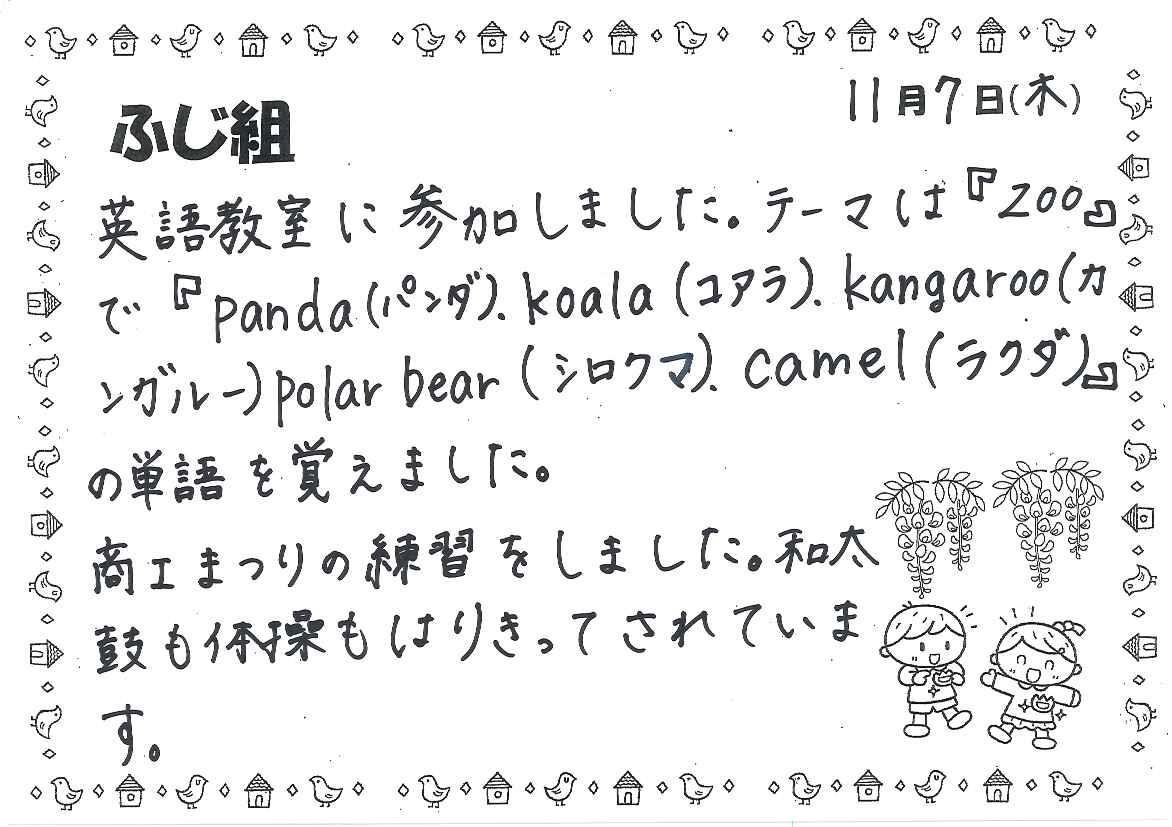 11月7日(木)
ふじ組
英語教室に参加しました。テーマは『ZOO』
で『panda(パンダ)、koala(コアラ)、kangaroo(カ
ンガルー)polar bear(シロクマ)、camel(ラクダ)』
の単語を覚えました。
商工まつりの練習をしました。和太
鼓も体操もはりきってされていま
す。